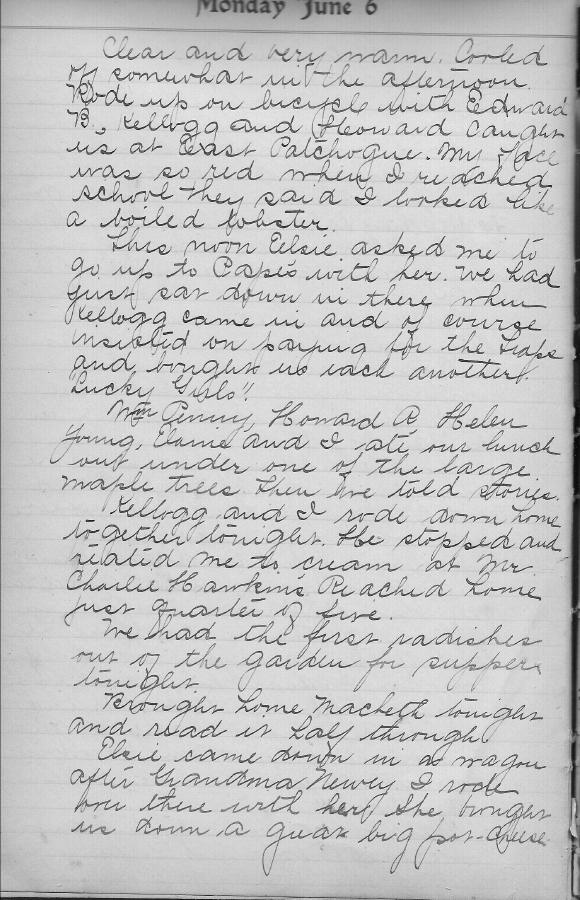 Monday June 6
Clear and very warm. Cooled
off somewhat in the afternoon.
Rode up on bicycle with Edward
B., Kellogg and Howard caught
us at East Patchogue. My face
was so red when I reached
school they said I looked like
a boiled lobster.
This noon Elsie asked me to
go up to Papes with her. We had
just sat down in there when
Kellogg came in and of course
insisted on paying for the
and bought us each another.
"Lucky Girls".
Wm Penny, Howard R, Helen
Young, Elaine and I ate our lunch
out under one of the large
maple trees then we told stories.
Kellogg and I rode down home
together tonight. He stopped and
treated me to cream at Mr.
Charlie Hawkins. Reached home
just quarter of five.
We had the first radishes
out of the garden for supper
tonight.
Brought home Macbeth tonight
and read it half through.
Elsie came down in a wagon
after Grandma Newey I rode
over there with her. She brought
us down a great big pot-cheese